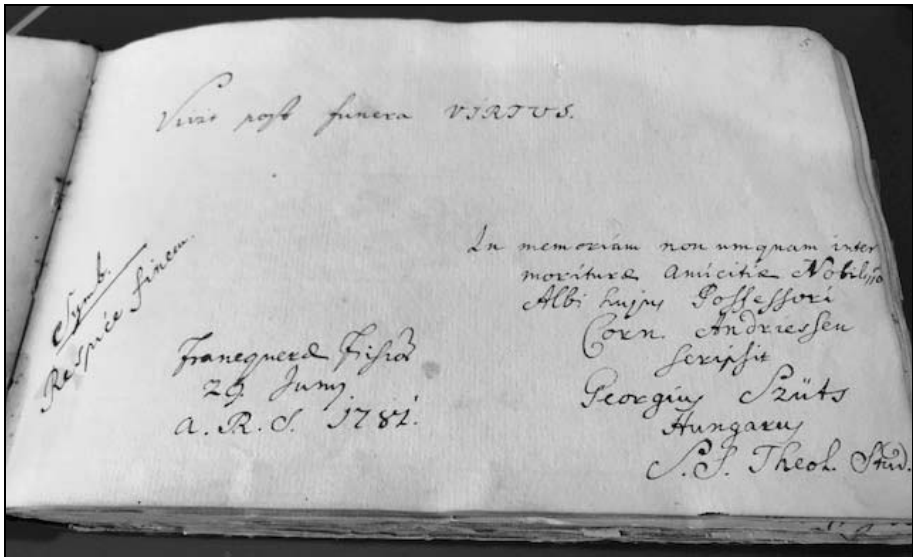 5
Vivit post funera VIRTUS.
Symb.
Respice finem.
Franequeræ Frisior
29. Junij
A. R. S. 1781.
In memoriam non umquam inter
morituræ amicitiæ Nobilisso
Albi hujus Possessori
Corn. Andriessen
scripsit
Georgius Szüts
Hungarus
S. S. Theol. Stud.